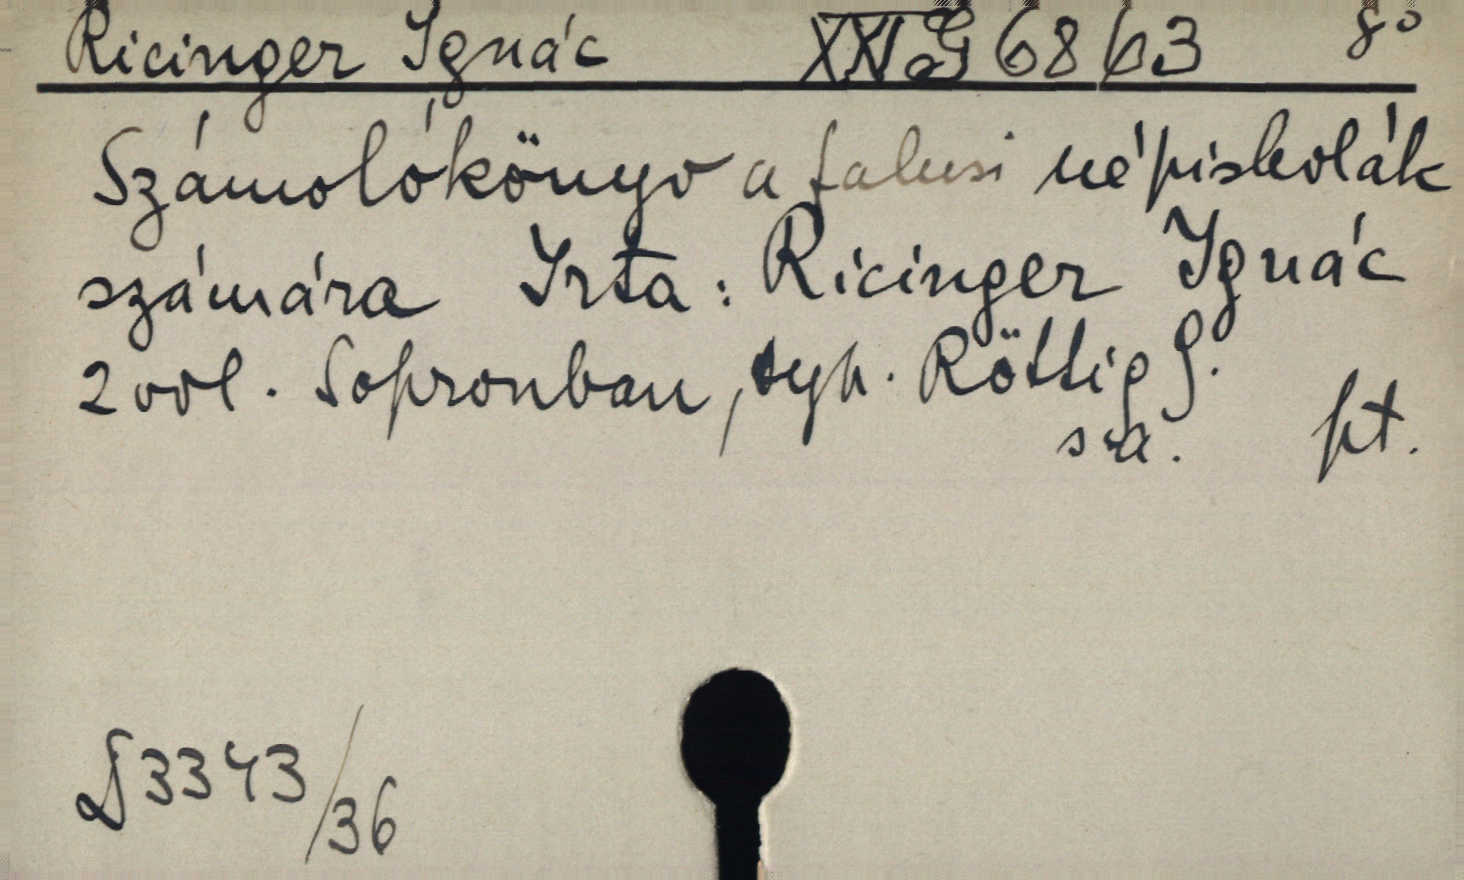 Ricinger Ignác XXI G 68 63 8°
Számolókönyv a falusi népiskolák
számára Irta: Ricinger Ignác
2 vol. Sopronban, nyh. Röttig G.
s.a. pt.
3343/36